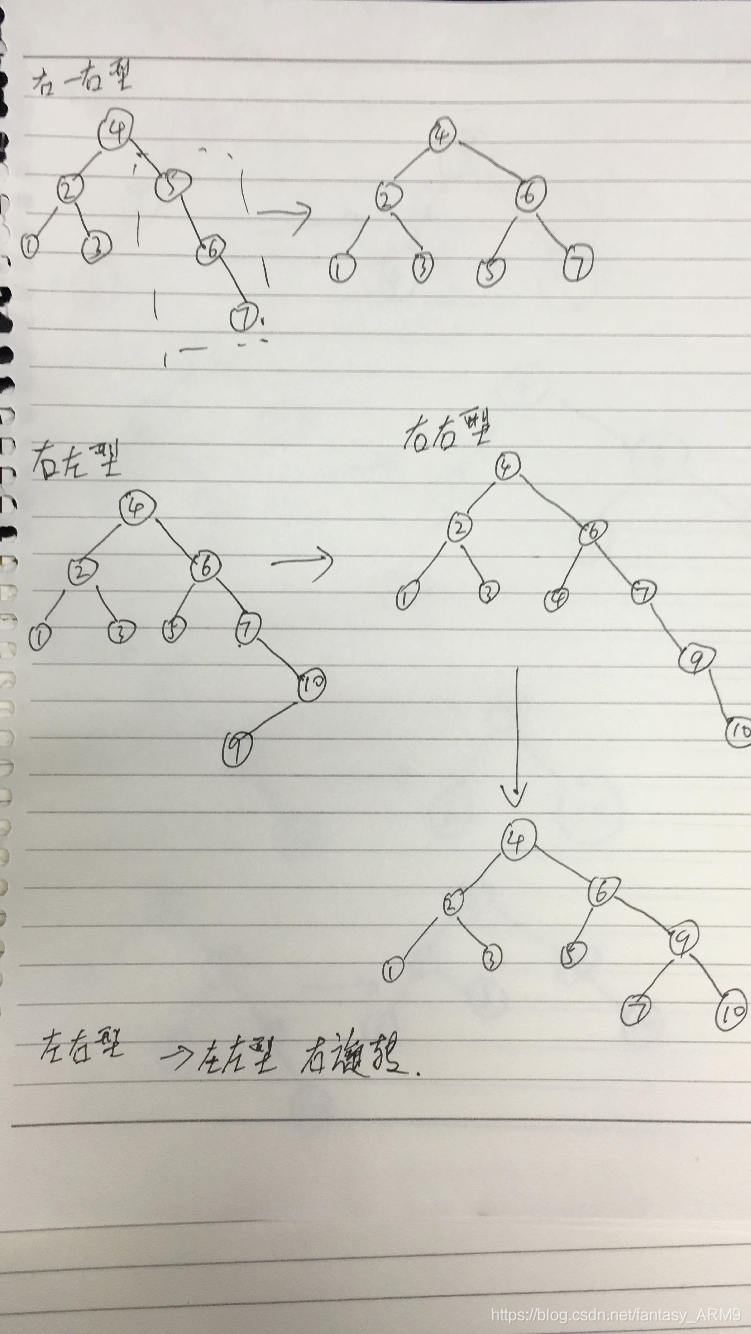 右一右型
4
4
2 5
2 6
1 3 6
1 3 5 7
7
右左型
4
2 6
1 3 5 7
10
9
右右型
4
2 6
1 3 4 7
9
10
4
2 6
1 3 5 9
7 10
左右型 →左左型 右旋转.
https://blog.csdn.net/fantasy_ARM9